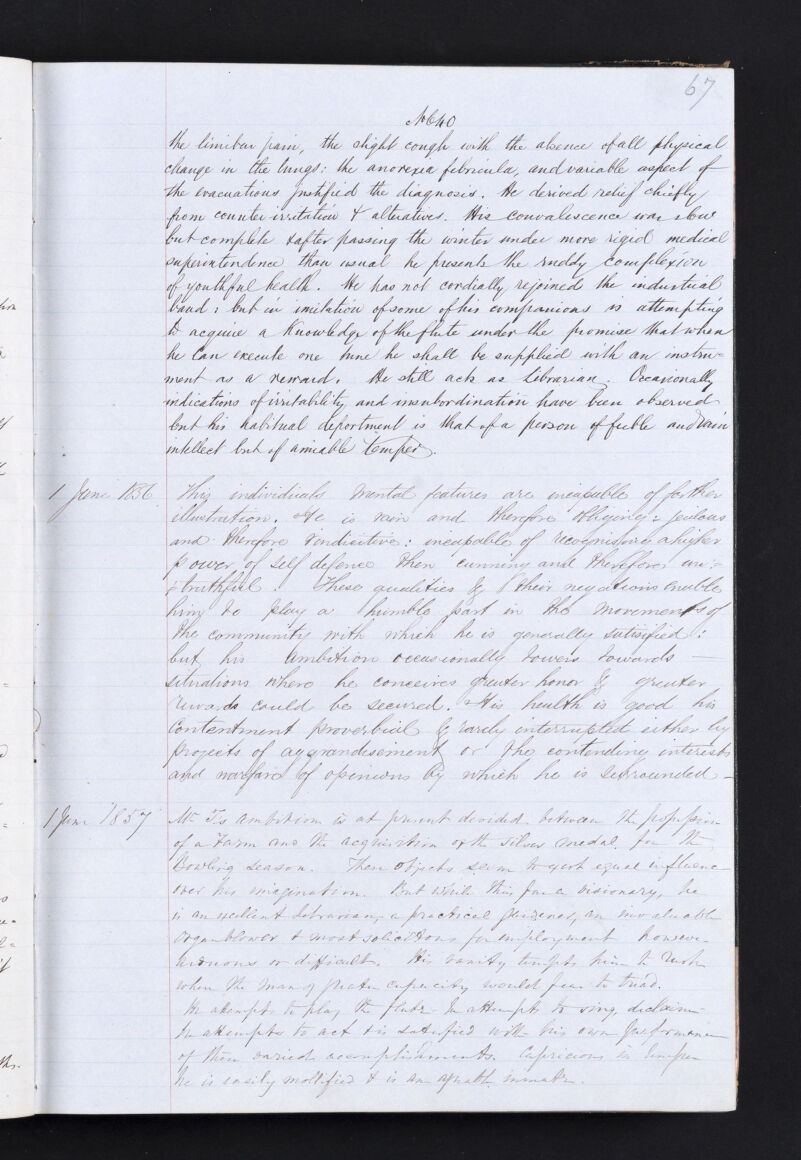 67
No 40
the limibar pain, the slight cough with the absence of all physical
change in the lungs: the anorexia febricula, and variable aspect of
the evacuations justified the diagnosis. He derived relief chiefly
from counter irritation & alteratives. His convalescence was slow
but complete & after passing the winter under more rigid medical
superintendence than usual he presents the ruddy complexion
of youthful health. He has not cordially rejoined the industrial
band: but in imitation of some of his companions is attempting
to acquire a knowledge of the flute under the promise that when
he can execute one tune he shall be supplied with an instru-
ment as a reward. He still acts as Librarian. Occasionally
indications of irritability and insubordination have been observed
but his habitual deportment is that of a person of feeble and vain
intellect but of amiable temper.
1 June 1856. This individuals mental features are incapable of farther
illustration. He is vain and therefore obliging: jealous
and therefore vindictive: incapable of recognising a higher
power of self defence then cunning and therefore un:
:truthful. These qualities & their negations enable
him to play a humble part in the movements of
the community with which he is generally satisified:
but his ambition occasionally towers towards
situations where he conceives greater honor & greater
rewards could be secured. His health is good his
contentment proverbial & rarely interrupted either by
projects of aggrandisement or the contending interests
and warfare of openions by which he is surrounded -
1 June 1857 Mr F's ambition is at present divided between the possession
of a Farm and the acquisition of the silver medal for the
Bowling season. These objects seem to exert equal influence
over his imagination. But while thus far a visionary, he
is an excellent Librarian, a practical gardener, an invaluable
organblower & most solicitous for employment however
arduous or difficult. His vanity tempts him to rush
where the man of greater capacity would fear to tread.
He attempts to play the flute he attempts to sing, declaim
he attempts to act & is satisfied with his own performance
of these varied accomplishments. Capricious in temper
he is easily mollified & is an inmate.